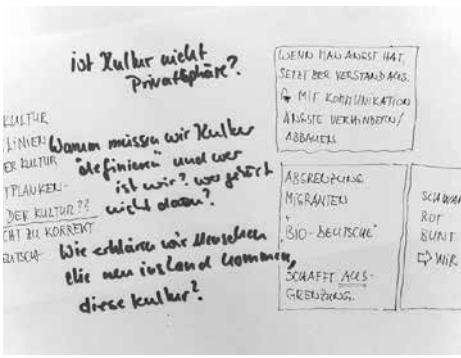 ist Kultur nicht
Privatsphäre?
KULTUR
LINIEN
ER KULTUR
TPLANKEN-
DER KULTUR??
CHT ZU KORREKT
EUTSCH
Warum müssen wir Kultur
"definieren" und wer
ist wir? wer gehört
nicht dazu?
Wie erklären wir Menschen
die neu ins Land kommen,
diese Kultur?
WENN MAN ANGST HAT,
SETZT DER VERSTAND AUS.
↳ MIT KOMMUNIKATION
ÄNGSTE VERHINDERN/
ABBAUEN
ABGRENZUNG
MIGRANTEN
+
"BIO-DEUTSCHE"
SCHAFFT AUS-
GRENZUNG.
SCHWAR
ROT
BUNT
⇨ WIR